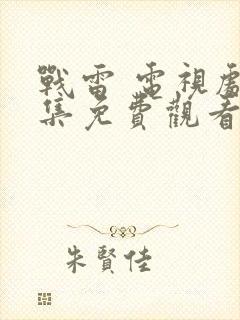 戰雷 電視劇
集免費觀看
朱賢佳